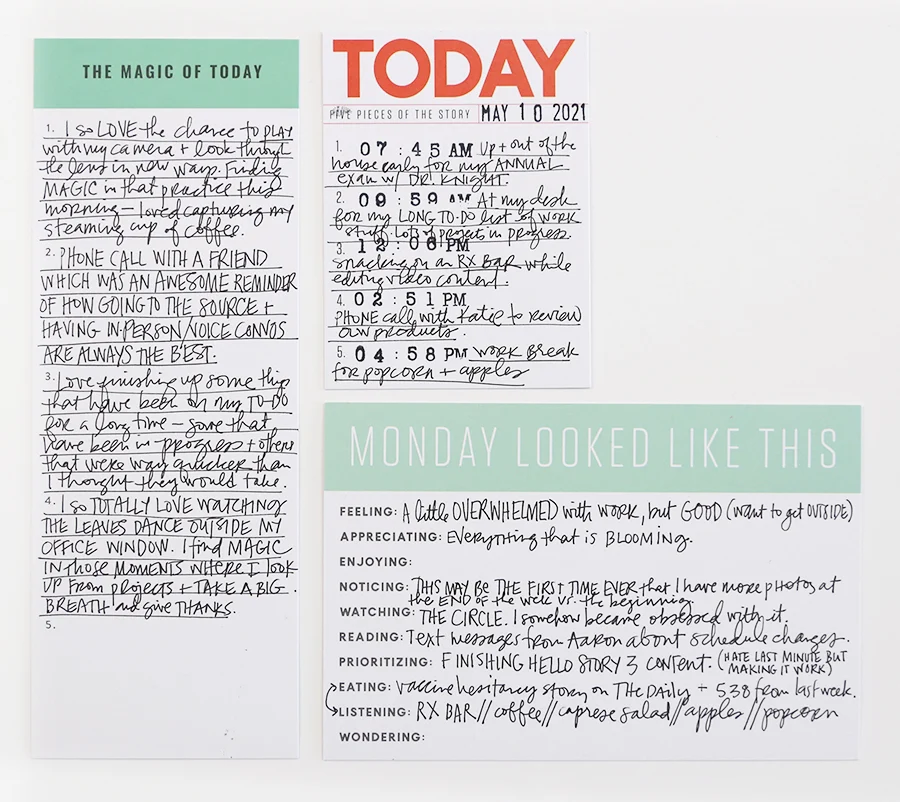 THE MAGIC OF TODAY
1. I so LOVE the chance to PLAY
with my camera + look through
the lens in new ways. Finding
MAGIC in that practice this
morning — loved capturing my
steaming cup of coffee.
2. PHONE CALL WITH A FRIEND
WHICH WAS AN AWESOME REMINDER
OF HOW GOING TO THE SOURCE +
HAVING IN-PERSON/VOICE CONVOS
ARE ALWAYS THE BEST.
3. Love finishing up some things
that have been on my TO-DO
for a long time — some that
have been in-progress + others
that were way quicker than
I thought they would take.
4. I so TOTALLY LOVE WATCHING
THE LEAVES DANCE OUTSIDE MY
OFFICE WINDOW. I find MAGIC
IN those MOMENTS WHERE I LOOK
UP From projects + TAKE A BIG
BREATH and give THANKS.
5.
TODAY
FIVE PIECES OF THE STORY MAY 10 2021
1. 07:45 AM Up + out of the
house early for my ANNUAL
exam w/ DR. KNIGHT.
2. 09:59 AM At my desk
for my LONG TO-DO list of work
stuff. Lots of projects in progress.
3. 12:06 PM
snacking on an RX BAR while
editing video content.
4. 02:51 PM
PHONE call with Katie to review
our products.
5. 04:58 PM work Break
for popcorn + apples
MONDAY LOOKED LIKE THIS
FEELING: A little OVERWHELMED with WORK, but GOOD (want to get OUTSIDE)
APPRECIATING: Everything that is BLOOMING.
ENJOYING:
NOTICING: THIS MAY BE THE FIRST TIME EVER that I have more photos at
the END of the week vs. the beginning.
WATCHING: THE CIRCLE. I somehow became obsessed with it.
READING: Text messages from Aaron about schedule changes.
PRIORITIZING: FINISHING HELLO STORY 3 CONTENT. (HATE LAST MINUTE BUT
MAKING IT WORK)
EATING: vaccine hesitancy story on THE DAILY + 538 from last week.
LISTENING: RX BAR // coffee // caprese salad // apples // popcorn
WONDERING: